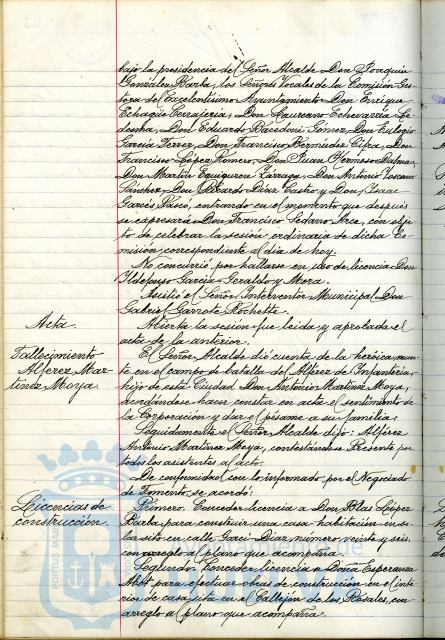 bajo la presidencia del Señor Alcalde Don Joaquín
González Barba, los Señores Vocales de la Comisión Ges-
tora del Excelentísimo Ayuntamiento Don Enrique
Echagüe Don Laureano Echevarría Le-
desma, Don Eduardo Gómez, Don Eulogio
García Ferrer, Don Francisco Bermúdez Don
Francisco López Romero, Don Juan Hermoso
Don Martín Equiguren Zárraga, Don Antonio
Sánchez, Don Ricardo Díaz Castro y Don Isaac
Garcés Pascó, entrando en el momento que después
se expresará Don Francisco Sedano Arce, con obje-
to de celebrar la sesión ordinaria de dicha Co-
misión correspondiente al día de hoy.
No concurrió por hallarse en uso de licencia Don
Ildefonso García Geraldo y Mora.
Asistió el Señor Interventor Municipal Don
Gabriel Garrote Rochette.
Acta.
Abierta la sesión fue leída y aprobada el
acta de la anterior.
Fallecimiento
Alférez Mar-
tínez Moya.
El Señor Alcalde dió cuenta de la heróica muer-
te en el campo de batalla del Alférez de Infantería
hijo de esta Ciudad Don Antonio Martínez Moya,
acordándose hacer constar en acta el sentimiento de
la Corporación y dar el pésame a su familia.
Seguidamente el Señor Alcalde dijo: Alférez
Antonio Martínez Moya, contestándose Presente por
todos los asistentes al acto.
Licencias de
construcción.
De conformidad con lo informado por el Negociado
de Fomento, se acordó:
Primero. Conceder licencia a Don Blas López
Barba, para construir una casa habitación en so-
lar sito en calle Garci Díaz, número veinte y seis,
con arreglo al plano que acompaña.
Segundo. Conceder licencia a Doña Esperanza
para efectuar obras de construcción en el inte-
rior de casa sita en el Callejón de los Rosales, con
arreglo a plano que acompaña.
PORTUS